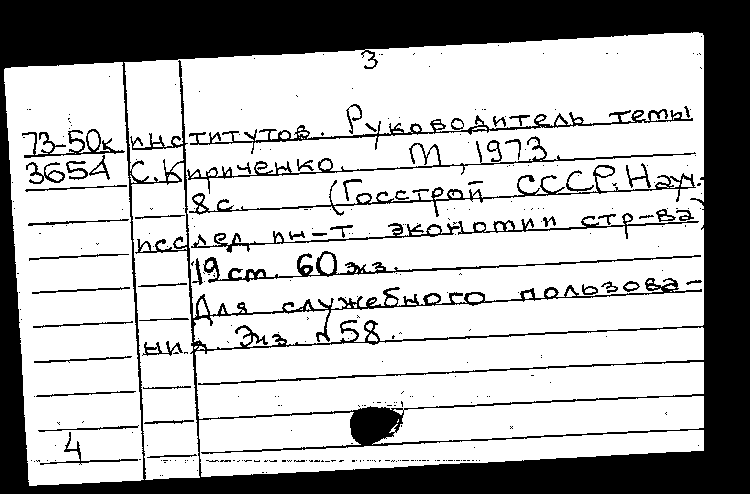 3
73-50к институтов. Руководитель темы
3654 С. Кириченко. М, 1973.
8 с. (Госстрой СССР. Науч.-
исслед. ин-т экономии стр-ва)
19 см. 60 экз.
Для служебного пользова-
ния. Экз. №58.
4